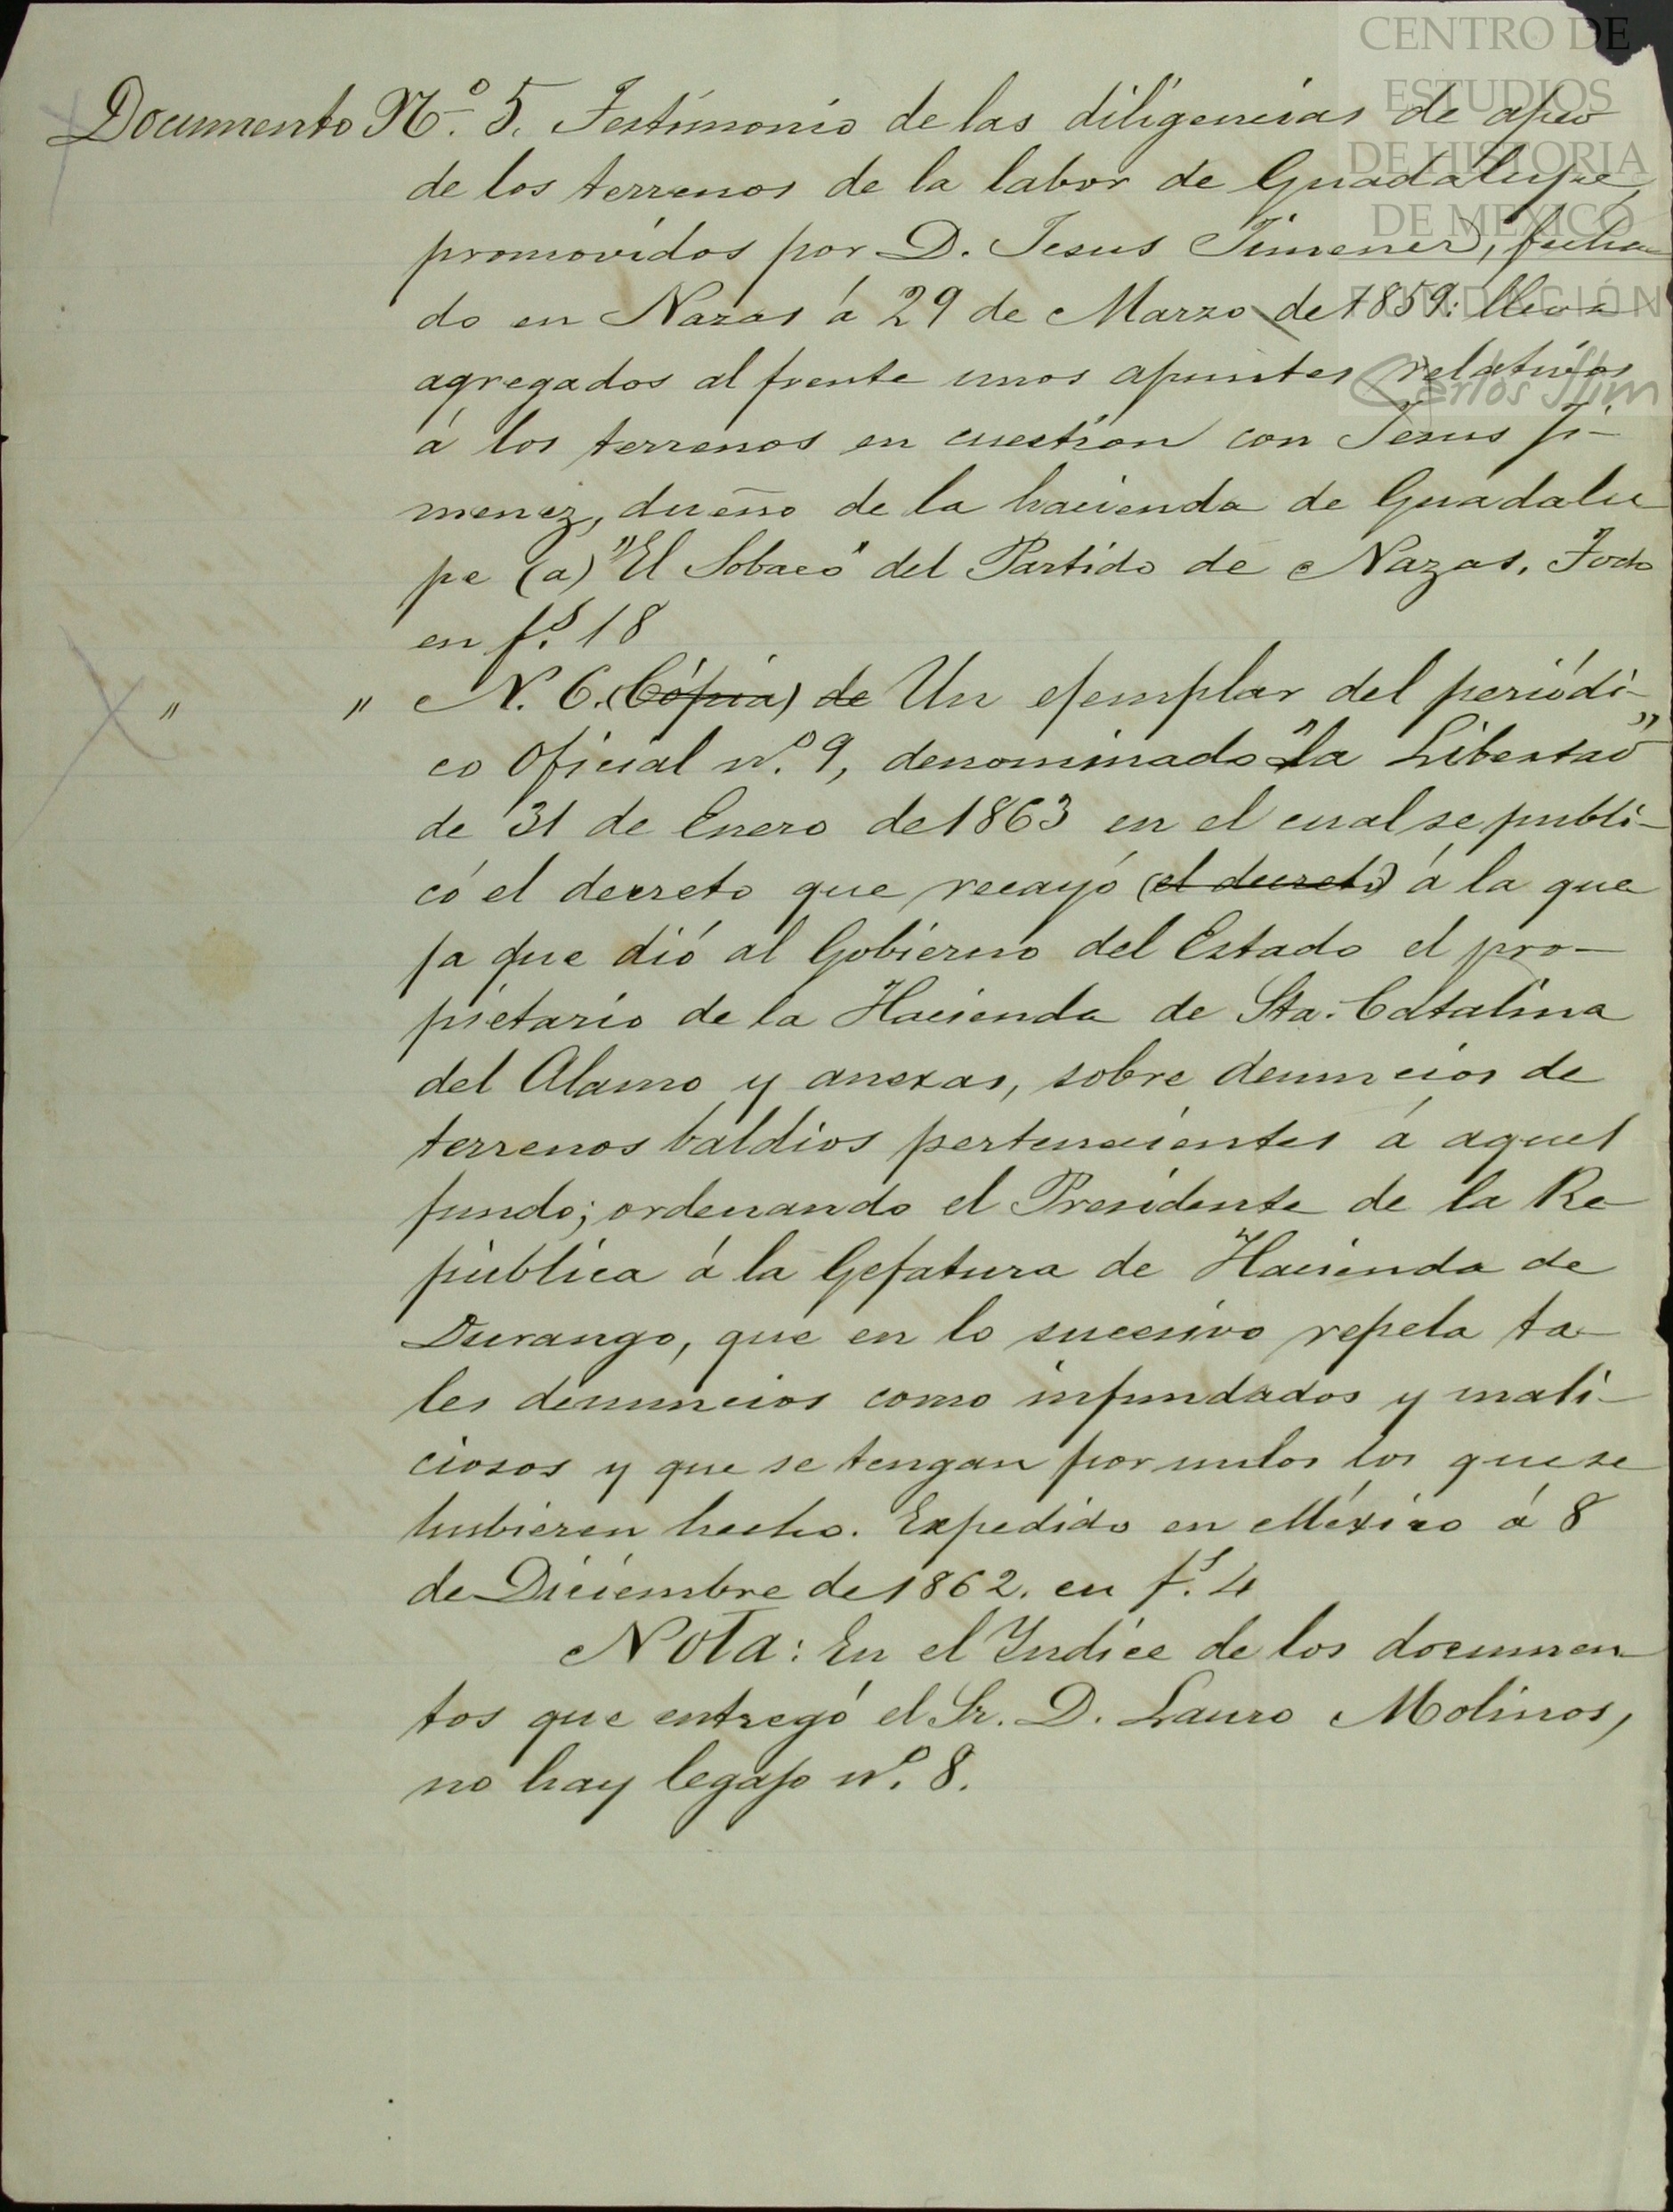 CENTRO DE
ESTUDIOS
DE HISTORIA
DE MÉXICO
FUNDACIÓN
Carlos Slim
Documento Nº. 5. Testimonio de las diligencias de apeo
de los terrenos de la labor de Guadalupe,
promovidos por D. Jesus Jimenez, fecha
do en Nazas á 29 de Marzo de 1859: lleva
agregados al frente unos apuntes relativos
á los terrenos en cuestion con Jesus Ji-
menez, dueño de la hacienda de Guadalu
pe (a) "El Sobaco" del Partido de Nazas. Todo
en fs. 18
" " N. 6. (Cópia) de Un ejemplar del periódi-
co Oficial nº. 9, denominado "la Libertad"
de 31 de Enero de 1863 en el cual se publi-
có el decreto que recayó (el decreto) á la que
ja que dió al Gobierno del Estado el pro-
pietario de la Hacienda de Sta. Catalina
del Alamo y anexas, sobre denuncios de
terrenos baldios pertenecientes á aquel
fundo; ordenando el Presidente de la Re
pública á la Gefatura de Hacienda de
Durango, que en lo sucesivo repela ta-
les denuncios como infundados y mali-
ciosos y que se tengan por nulos los que se
hubieren hecho. Expedido en México á 8
de Diciembre de 1862. en fs. 4
Nota: En el Yndice de los documen
tos que entregó el Sr. D. Lauro Molinos,
no hay legajo nº. 8.